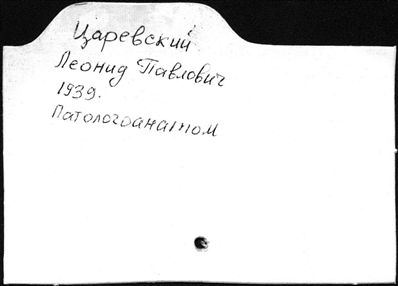 Царевский
Леонид Павлович
1939.
Патологоанатом